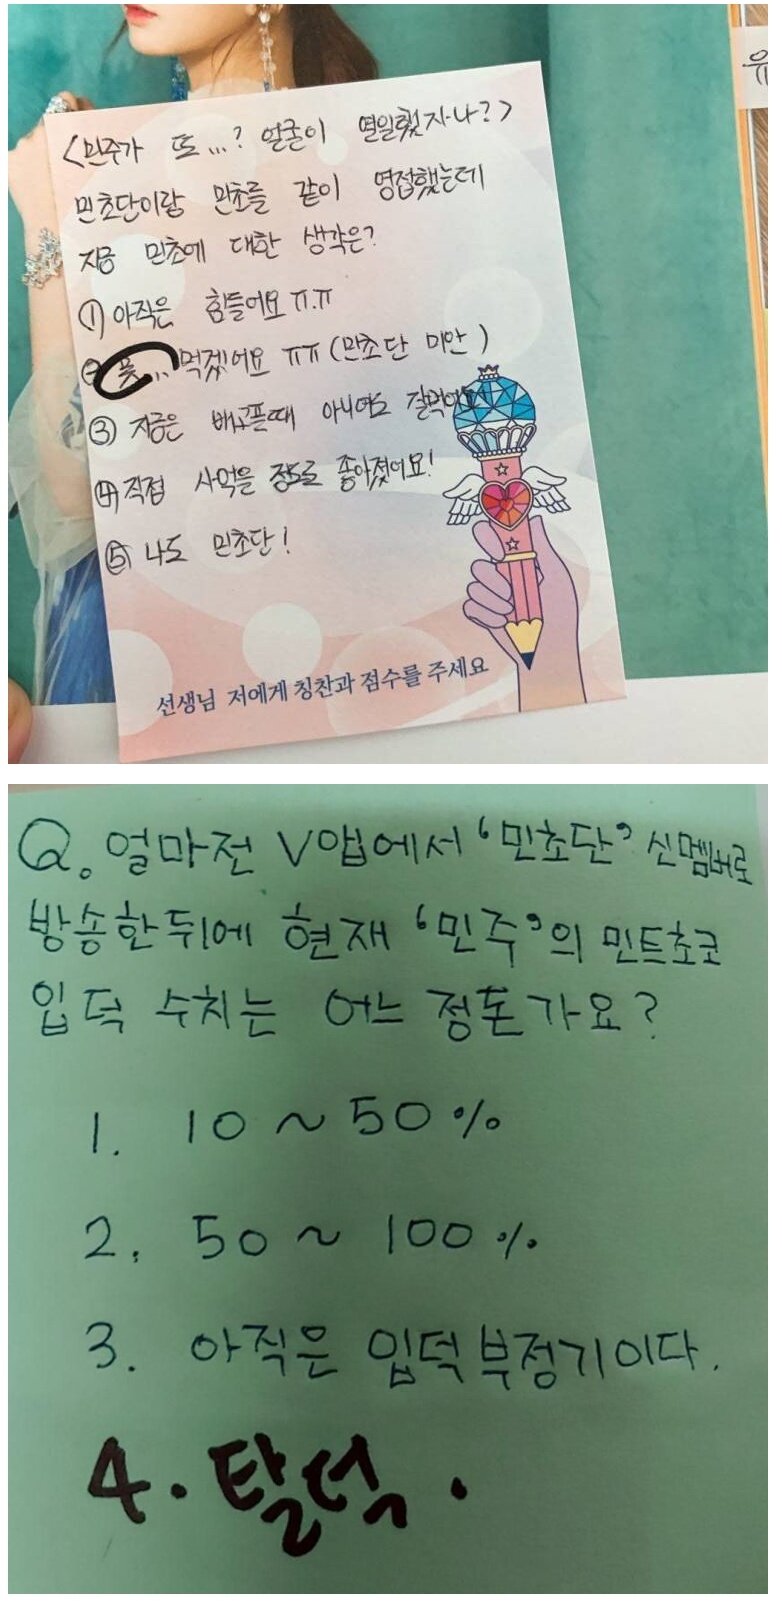 유
<민주가 또...? 얼굴이 열일했자나?>
민초단이랑 민초를 같이 영접했는데
지금 민초에 대한 생각은?
① 아직은 힘들어요 ㅠ.ㅠ
② 못... 먹겠어요 ㅠㅠ (민초단 미안)
③ 지금은 배고플때 아니여도 잘먹어요!
④ 직접 사먹을 정도로 좋아졌어요!
⑤ 나도 민초단!
선생님 저에게 칭찬과 점수를 주세요
Q. 얼마전 V앱에서 '민초단' 신멤버로
방송한 뒤에 현재 '민주'의 민트초코
입덕 수치는 어느 정돈가요?
1. 10 ~ 50 %
2. 50 ~ 100 %
3. 아직은 입덕부정기이다.
4. 탈덕.